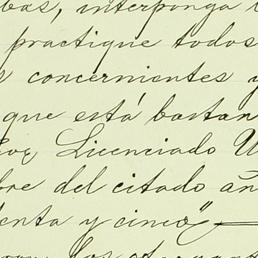 bas, interponga
practique todos
concernientes y
que está bastan
Licenciado
bre del citado añ
enta y cinco"